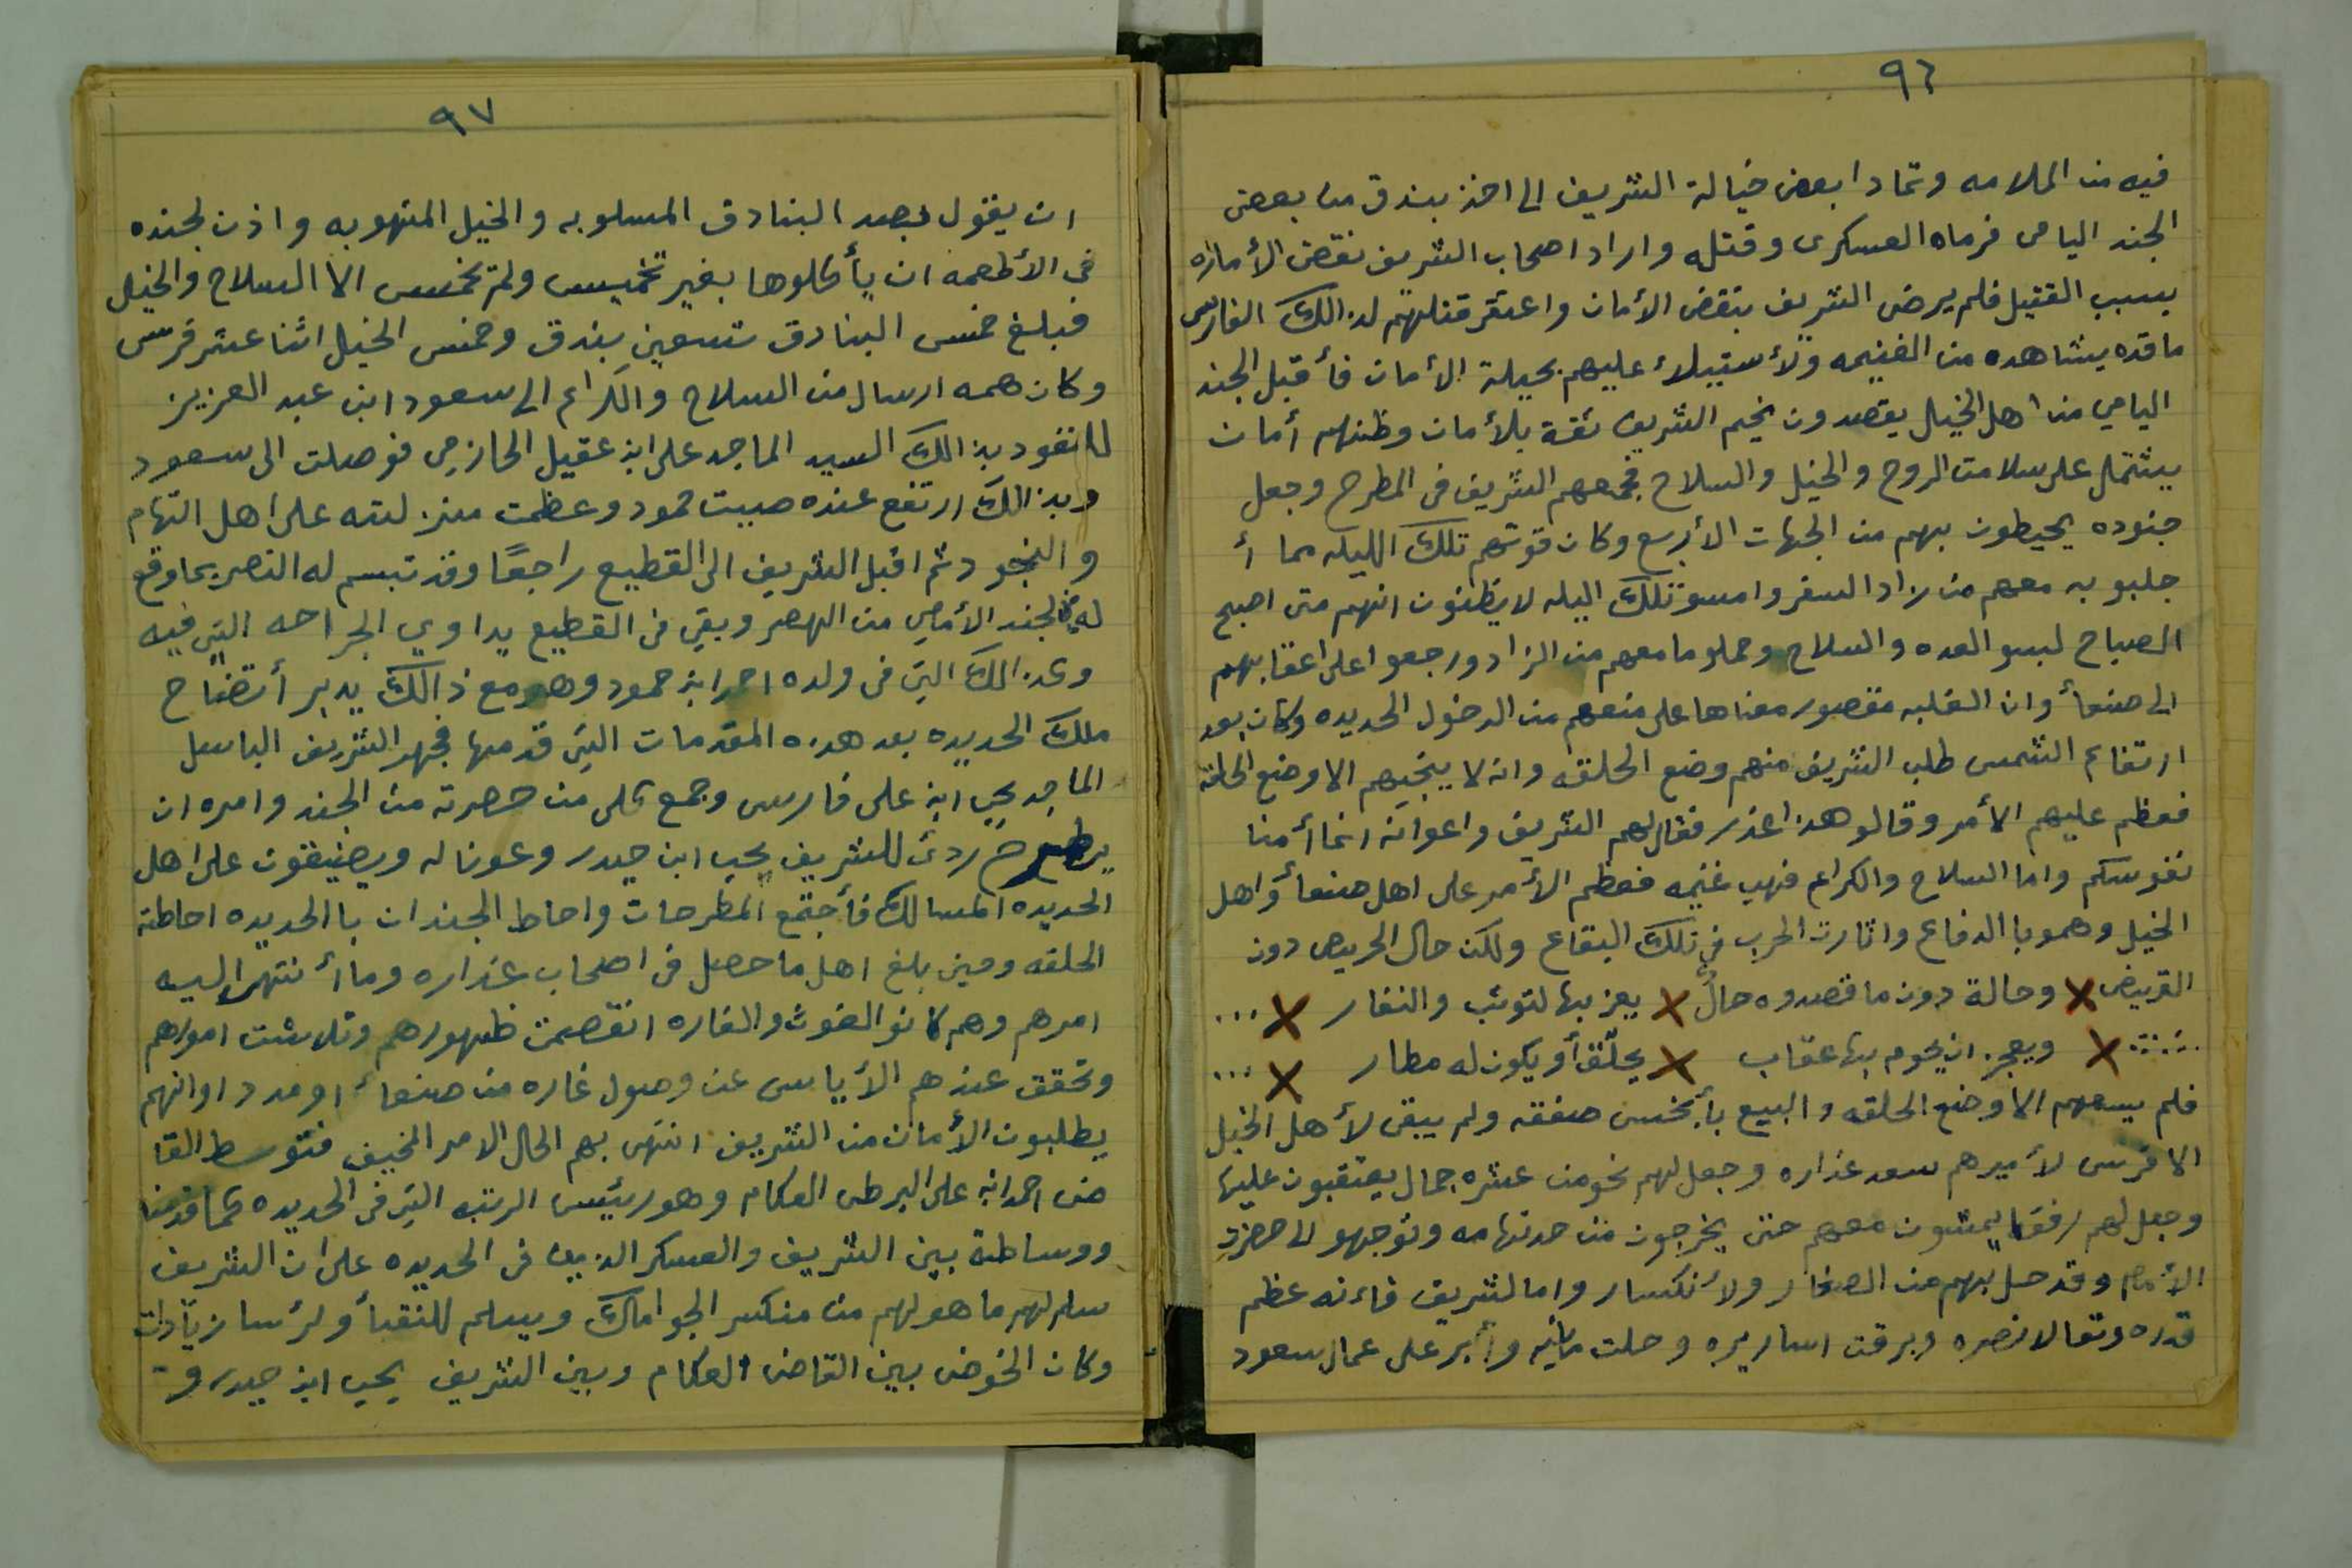 ٩٦
فيه من الملامه وتمادا بعض خيالة الشريف الى اخذ بندق من بعض
الجند اليامى فرماه العسكرى وقتله واراد اصحاب الشريف نقض الأمانه
بسبب القتيل فلم يرض الشريف بنقض الأمان واعتقر قتلتهم لذالك الفارس
ماقده يشاهده من الغنيمه ولأستيلاء عليهم بحيلة الأمان فأقبل الجند
اليامي من اهل الخيل يقصدون مخيم الشريف ثقة بلأمان وظنهم أمان
يشتمل على سلامت الروح والخيل والسلاح فجمعهم الشريف فى المطرح وجعل
جنوده يحيطون بهم من الجهات الأربع وكان قوتهم تلك الليله مما أ
جلبو به معهم من زاد السفر وامسو تلك اليله لا يظنون انهم متى اصبح
الصباح لبسو العده والسلاح وحملو مامعهم من الزاد ورجعوا على اعقابهم
الى صنعأ وان الغلبه مقصور معناها على منعهم من الدخول الحديده وكان بعد
ارتفاع الشمس طلب الشريف منهم وضع الحلقه وانه لا ينجيهم الا وضع الحلقة
فعظم عليهم الأمر وقالو هذا غدر فقال لهم الشريف واعوانه انما أمنا
نفوسكم واما السلاح والكراع فهب غنيمه فعظم الأمر على اهل صنعأ واهل
الخيل وهمو با الدفاع واثارت الحرب في تلك البقاع ولكن حال الجريض دون
القريض × وحالة دون ماقصدوه حالٌ × يعز بها لتوثب والنفار × ...
...... × ويعجز ان يحوم بها عقاب × يحلّق أو يكون له مطار × ...
فلم يسعهم الا وضع الحلقه والبيع بأبخس صفقه ولم يبقى لأهل الخيل
الا فرس لأميرهم سعد عذاره وجعل لهم نحو من عشره جمال يعتقبون عليها
وجعل لهم رفقا يمشون معهم حتى يخرجون من حد تهامه وتوجهو الى حضرة
الأمام وقد حل بهم من الصغار ولأنكسار واما لشريف فاءنه عظم
قدره وتعالا نصره وبرقت اساريره وحلت وأبر على عمال سعود
٩٧
ان يقول بصد البنادق المسلوبه والخيل المنهوبه واذن لجنده
فى الأطعمه ان يأكلوها بغير تخميس ولم تخمس الا السلاح والخيل
فبلغ خمس البنادق تسعين بندق وخمس الخيل اثنا عشر فرس
وكان همه ارسال من السلاح والكراع الى سعود ابن عبد العزيز
بذالك السيد الماجد على ابن عقيل الحازمي فوصلت الى سعود
وبذالك ارتفع عنده صيت حمود وعظمت منزلته على اهل التهام
والنجود ثم اقبل الشريف الى القطيع راجعًا وقد تبسم له النصر بما وقع
له الجند الأمامي من الهصر وبقي فى القطيع يداوي الجراحه التي فيه
وكذالك التي فى ولده احمد ابن حمود وهو مع ذالك يدبر أتضاح
ملك الحديده بعد هذه المقدمات التي قدمها فجهز الشريف الباسل
الماجد يحي ابن على فارس وجمع كلى من حصرته من الجند وامره ان
يطرح ردئ للشريف يحيى ابن حيدر وعونا له ويضيقون على اهل
الحديده المسالك فأجتمع المطرحات واحاط الجندان با الحديده احاطة
الحلقه وحين بلغ اهل ما حصل فى اصحاب عذاره وما أنتهى اليه
امرهم وهم كانو الغوث والغاره انقصمت ظهورهم وتلاشت امورهم
وتحقق عندهم الأياس عن وصول غاره من صنعأ او مدد اوانهم
يطلبون الأمان من الشريف انتهى بهم الحال الامر المخيف فتوسط القا
ضى احمد ابن على البرطى العكام وهو رئيس الرتبه التي فى الحديده كما قدمنا
ووساطة بين الشريف والعسكر الذين فى الحديده على ان الشريف
سلم لهم ما هو لهم من منكسر الجوامك ويسلم للنقبأ ولرئسا زيادات
وكان الخوض بين القاضى العكام وبين الشريف يحيى ابن حيدر و